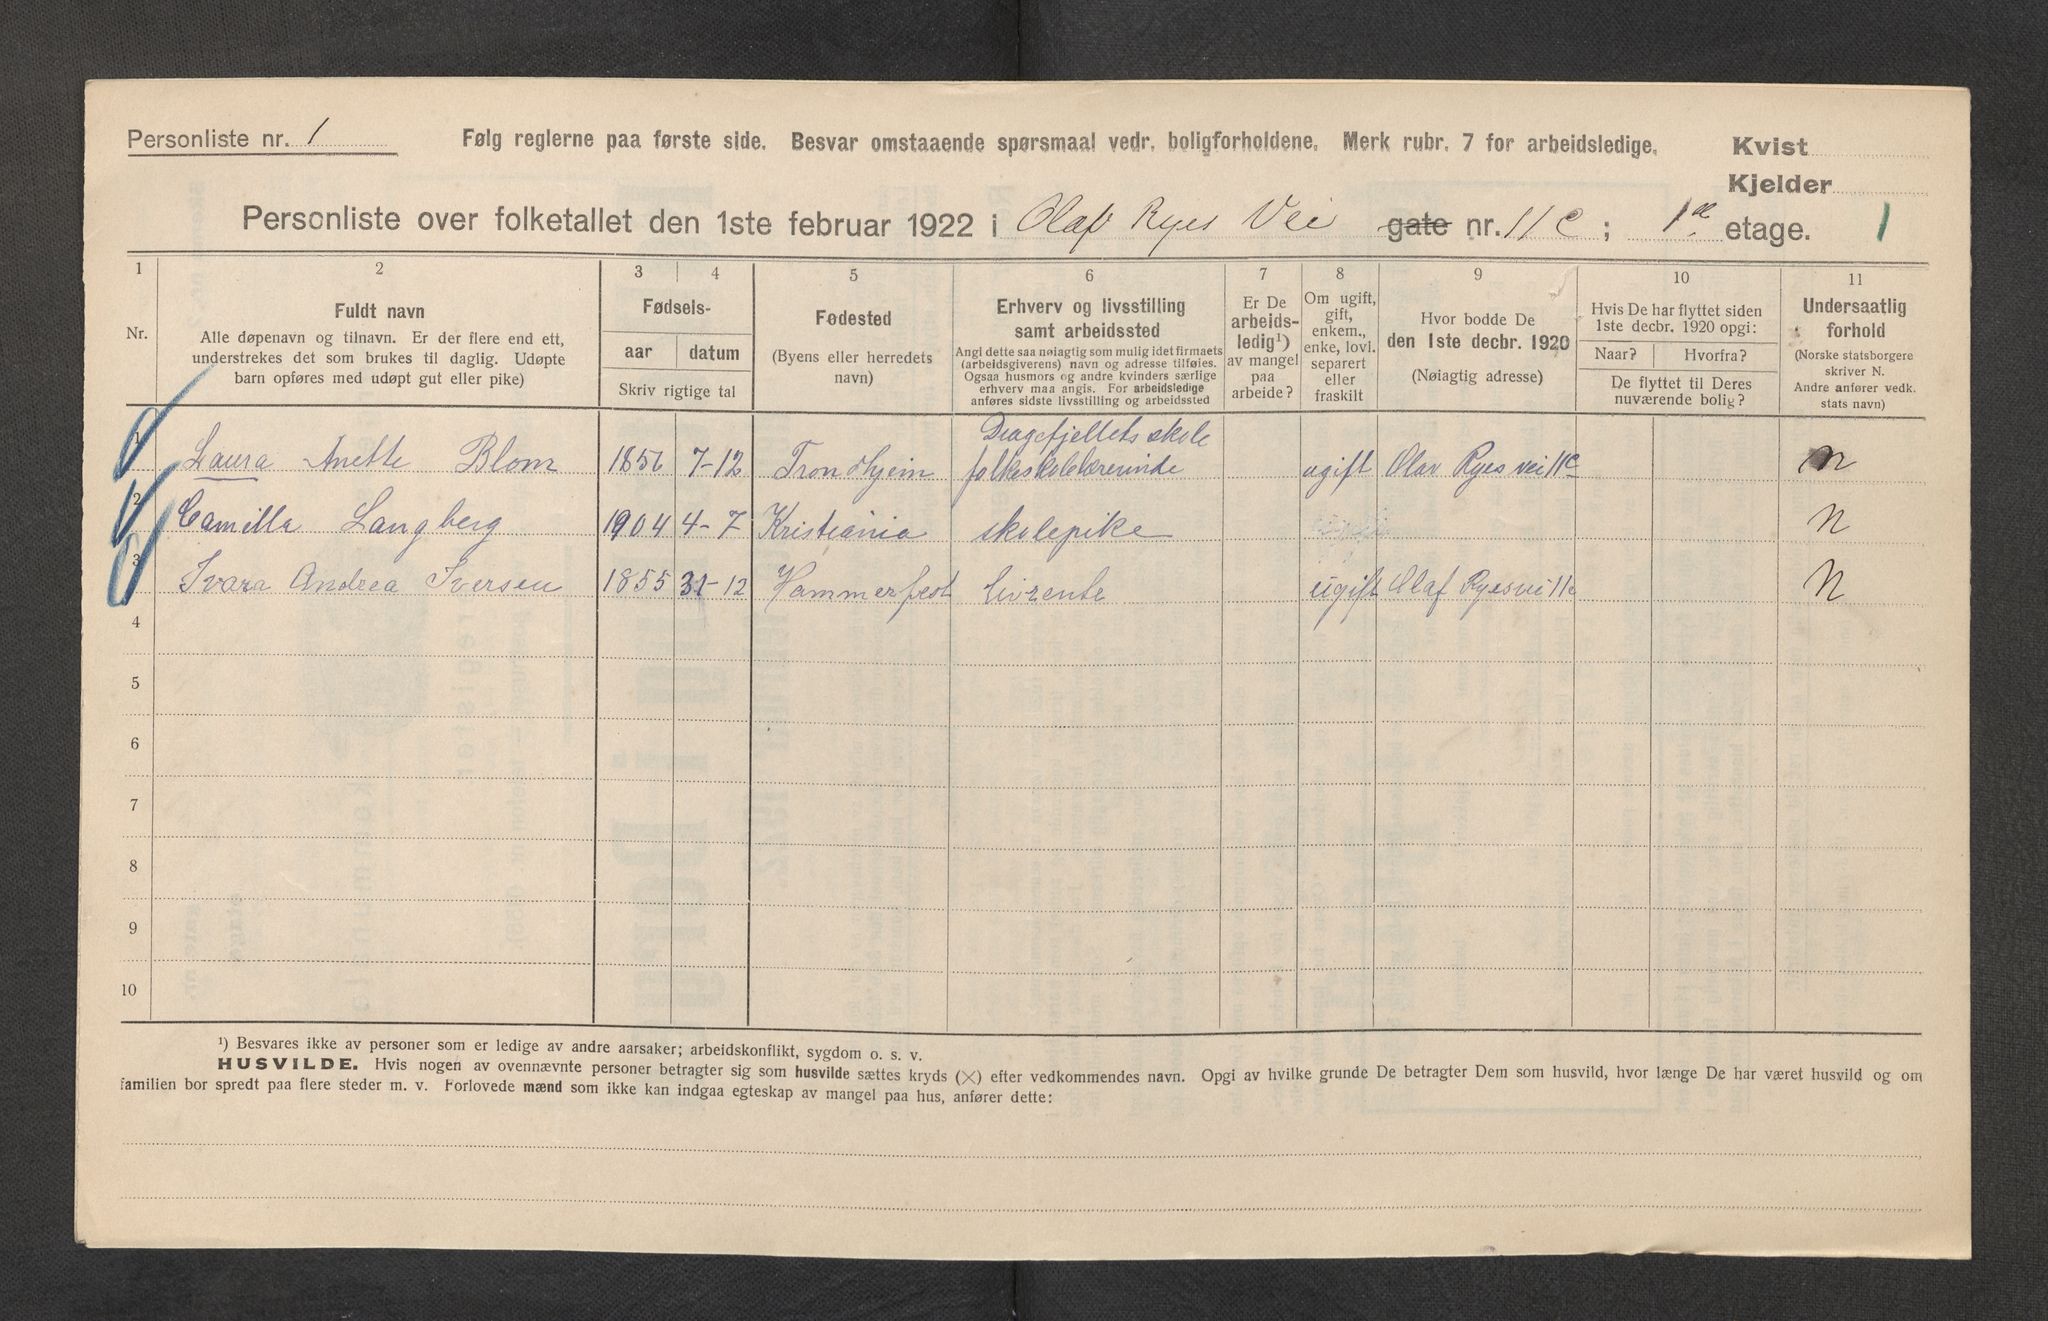 Personliste nr. 1
Følg reglerne paa første side. Besvar omstaaende spørsmaal vedr. boligforholdene. Merk rubr. 7 for arbeidsledige.
Kvist
Kjelder
Personliste over folketallet den 1ste februar 1922 i Olaf Ryes Vei gate nr. 11c; 1ste etage. 1
1 2 3 4 5 6 7 8 9 10 11
Nr.
Fuldt navn
Alle døpenavn og tilnavn. Er der flere end ett,
understrekes det som brukes til daglig. Udøpte
barn opføres med udøpt gut eller pike)
Fødsels-
aar datum
Skriv rigtige tal
Fødested
(Byens eller herredets
navn)
Erhverv og livsstilling
samt arbeidssted
Angi dette saa nøiagtig som mulig idet firmaets
(arbeidsgiverens) navn og adresse tilføies.
Ogsaa husmors og andre kvinders særlige
erhverv maa angis. For arbeidsledige
anføres sidste livsstilling og arbeidssted
Er De
arbeids-
ledig¹)
av mangel
paa
arbeide?
Om ugift,
gift,
enkem.,
enke, lovl.
separert
eller
fraskilt
Hvor bodde De
den 1ste decbr. 1920
(Nøiagtig adresse)
Hvis De har flyttet siden
1ste decbr. 1920 opgi:
Naar? Hvorfra?
De flyttet til Deres
nuværende bolig?
Undersaatlig
forhold
(Norske statsborgere
skriver N.
Andre anfører vedk.
stats navn)
Dragefjellets skole
1 Laura Anette Blom 1856 7-12 Trondhjem folkeskolelærerinde ugift Olav Ryes vei 11c N
2 Camilla Langberg 1904 4-7 Kristiania skolepike N
3 Svara Andrea Iversen 1855 31-12 Hammerfest livrente ugift Olaf Ryesvei 11c N
4
5
6
7
8
9
10
¹) Besvares ikke av personer som er ledige av andre aarsaker; arbeidskonflikt, sygdom o. s. v.
HUSVILDE. Hvis nogen av ovennævnte personer betragter sig som husvilde sættes kryds (×) efter vedkommendes navn. Opgi av hvilke grunde De betragter Dem som husvild, hvor længe De har været husvild og om
familien bor spredt paa flere steder m. v. Forlovede mænd som ikke kan indgaa egteskap av mangel paa hus, anfører dette: